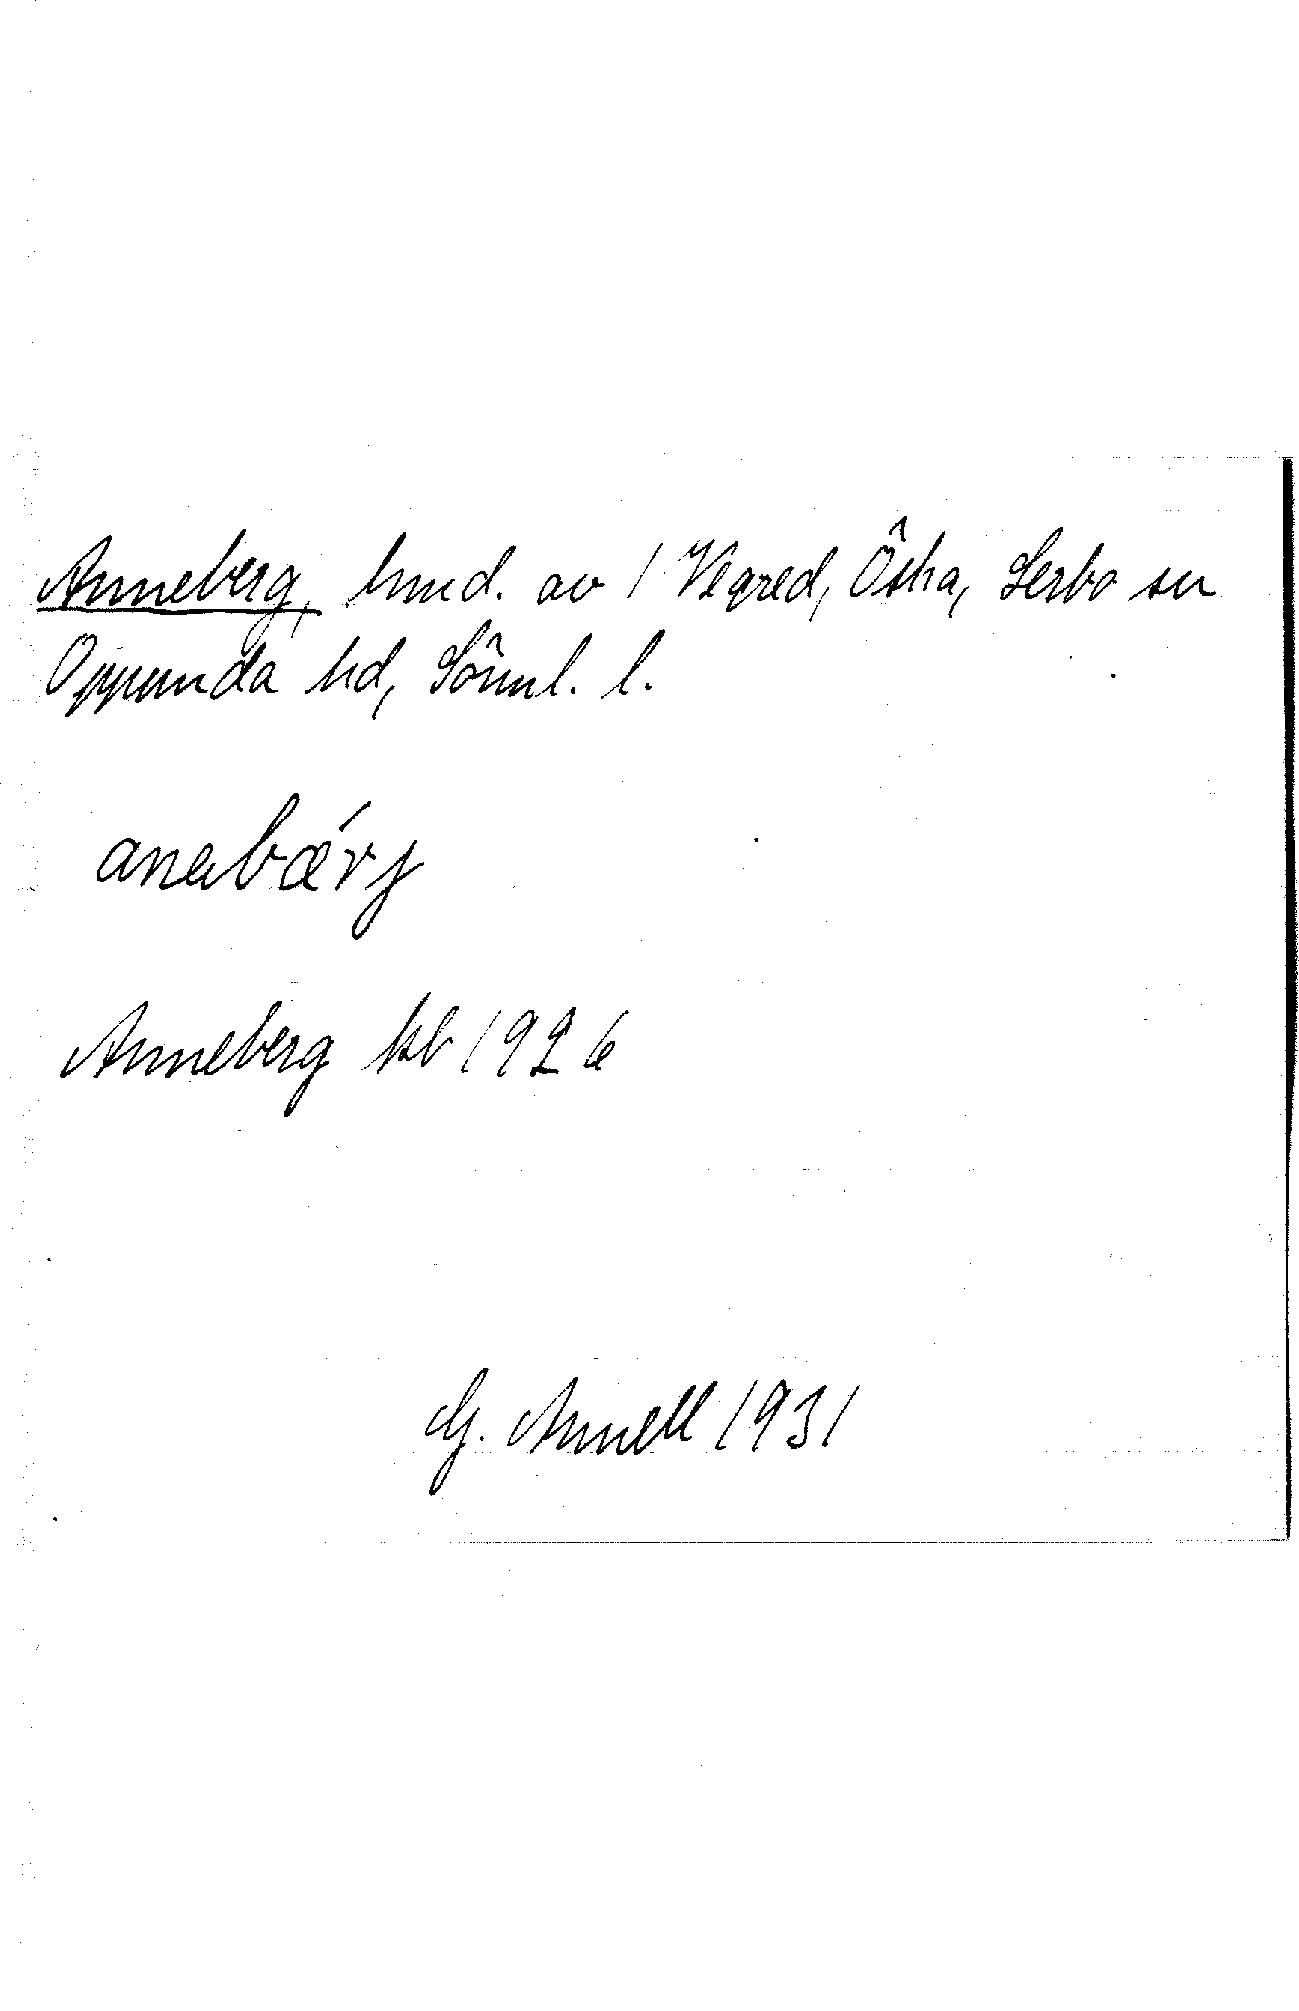 Anneberg, hmd. av 1 Vegred, Östra, Lerbo sn
Oppunda hd, Söml. l.
anabǽrj
Anneberg kb 1926
G. Annell 1931